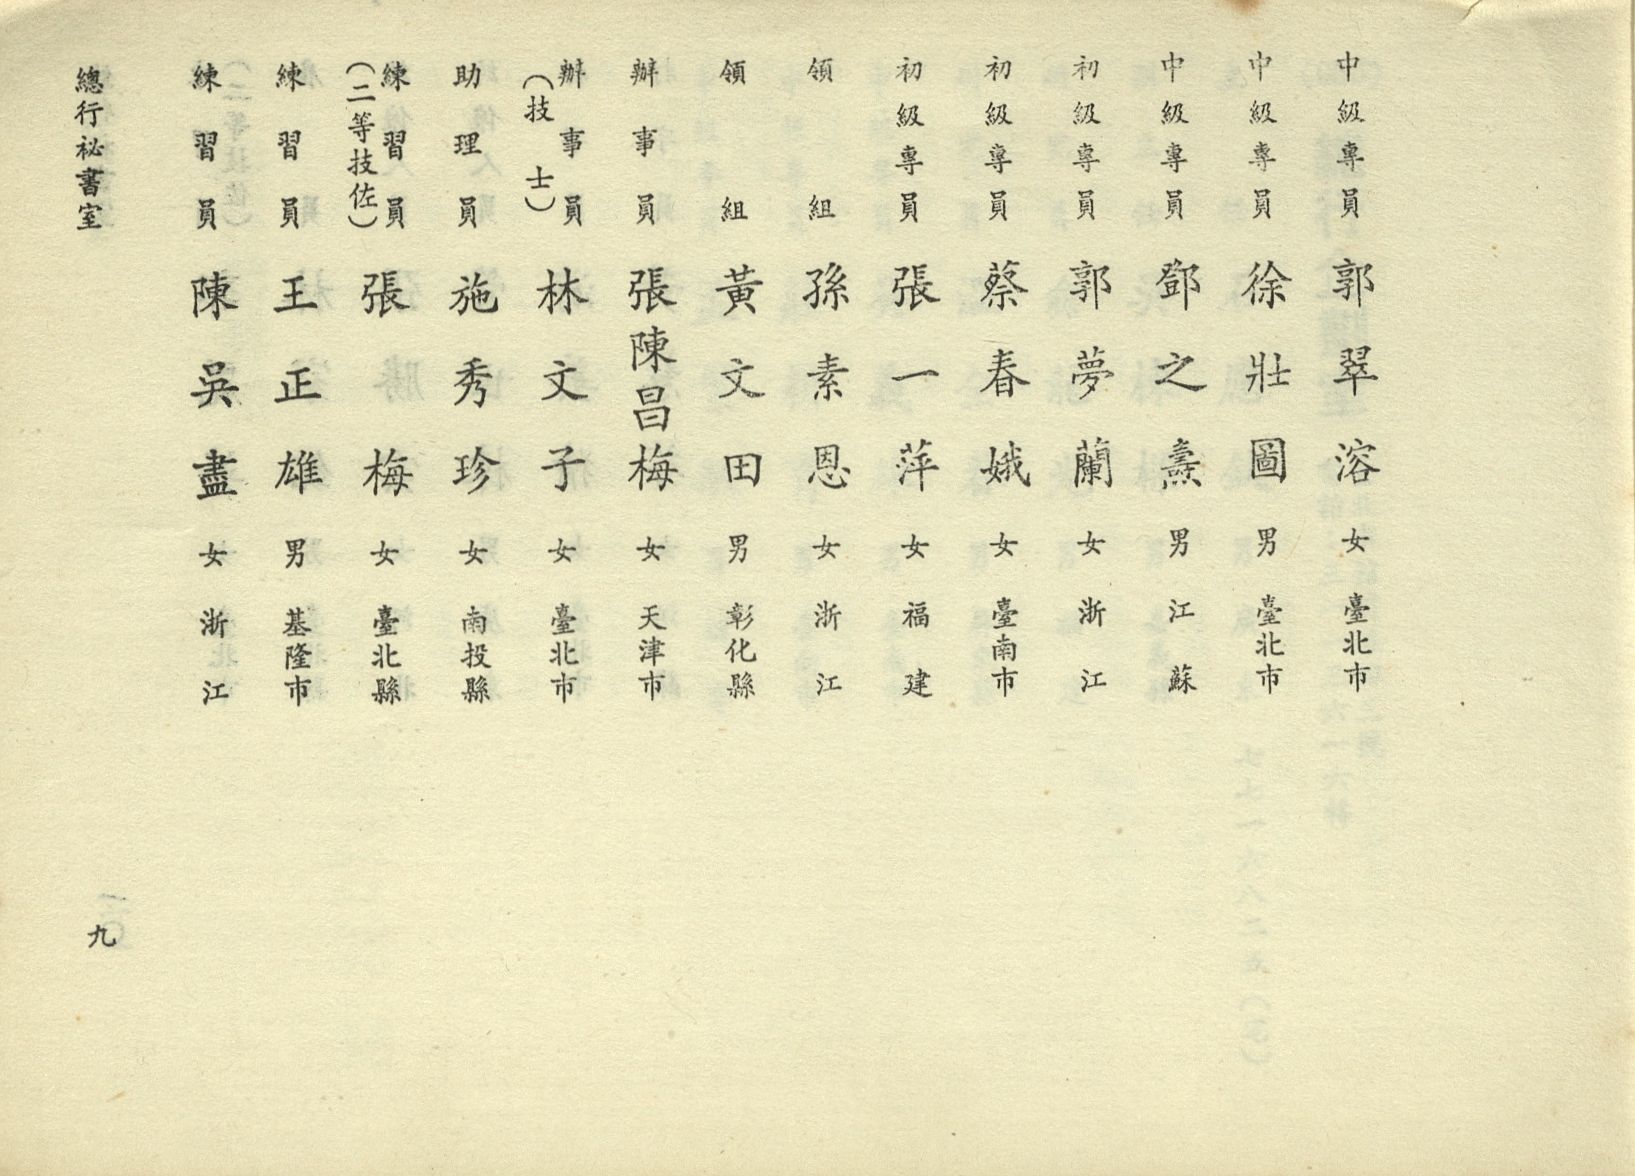 中級專員 郭翠溶 女 臺北市
中級專員 徐壯圖 男 臺北市
中級專員 鄧之燾 男 江蘇
初級專員 郭夢蘭 女 浙江
初級專員 蔡春娥 女 臺南市
初級專員 張一萍 女 福建
領組 孫素恩 女 浙江
領組 黃文田 男 彰化縣
辦事員 張陳昌梅 女 天津市
辦事員 林文子 女 臺北市
(技士)
助理員 施秀珍 女 南投縣
練習員 張梅 女 臺北縣
(二等技佐)
練習員 王正雄 男 基隆市
練習員 陳吳盡 女 浙江
總行祕書室
九